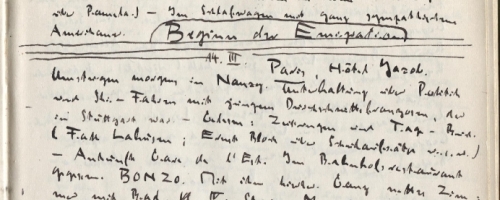 oder Pamela.) – Im Schlafwagen mit ganz sympathischem
Amerikaner. Beginn der Emigration
14. III.
Paris, Hôtel Jacob.
Umsteigen morgens in Nancy. Unterhaltung über Politik
und Ski-Fahren mit jungem Durchschnittsfranzosen, der
in Stuttgart war. – Gelesen: Zeitungen und Tage-Buch.
(Fall Lahusen; Ernst Bloch über u.s.w.)
– Ankunft Gare de l'Est. Im Bahnhofsrestaurant
gegessen. BONZO. Mit ihm hierher. Ganz nettes Zim-
mer mit Bad